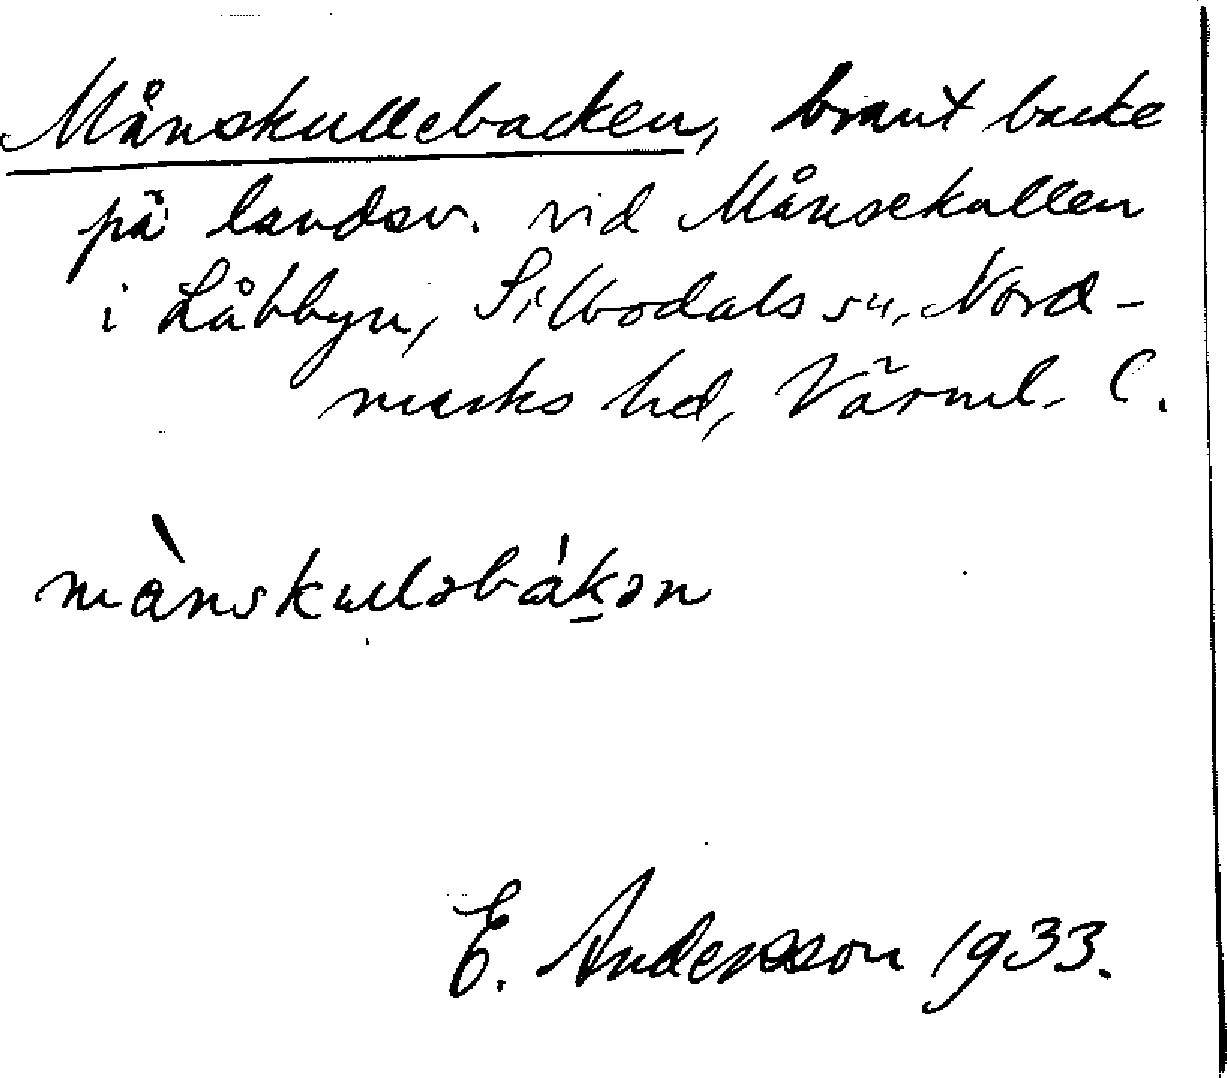 Månskullebacken, brant backe
på landsv. vid Månsekullen
i Låbbyn, Silbodals sn, Nord-
marks hd, Värml. C.
mànskulləbákən
E. Andersson 1933.